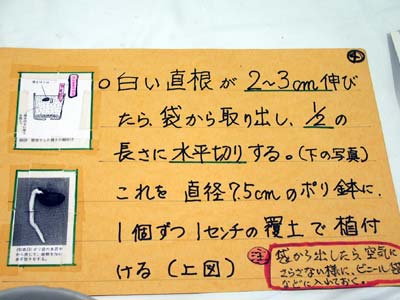 ○白い直根が2~3cm伸び
たら、袋から取り出し、1/2の
長さに水平切りする。(下の写真)
これを 直径7.5cmのポリ鉢に、
1個ずつ1センチの覆土で植付
ける(上図)
注 袋から出したら、空気に
さらさない様に、ビニール袋
などに入れておく。